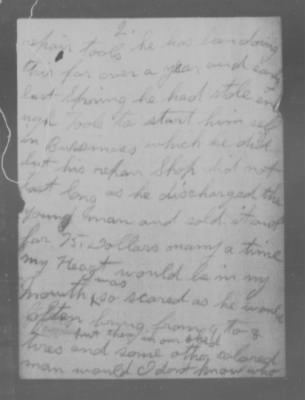 2.
repair tools he was
this for over a year and early
last Spring he had stole en
ugh tools to start him self
in Buisness which he did
but his repair Shop did not
last long as he discharged the
young man and sold it out
for 75. Dollars many a time
my Heart would be in my
mouth was so scared as he would
often bring from 4 to 8
tires and put them in our shed
and some other colored
man would I dont know who